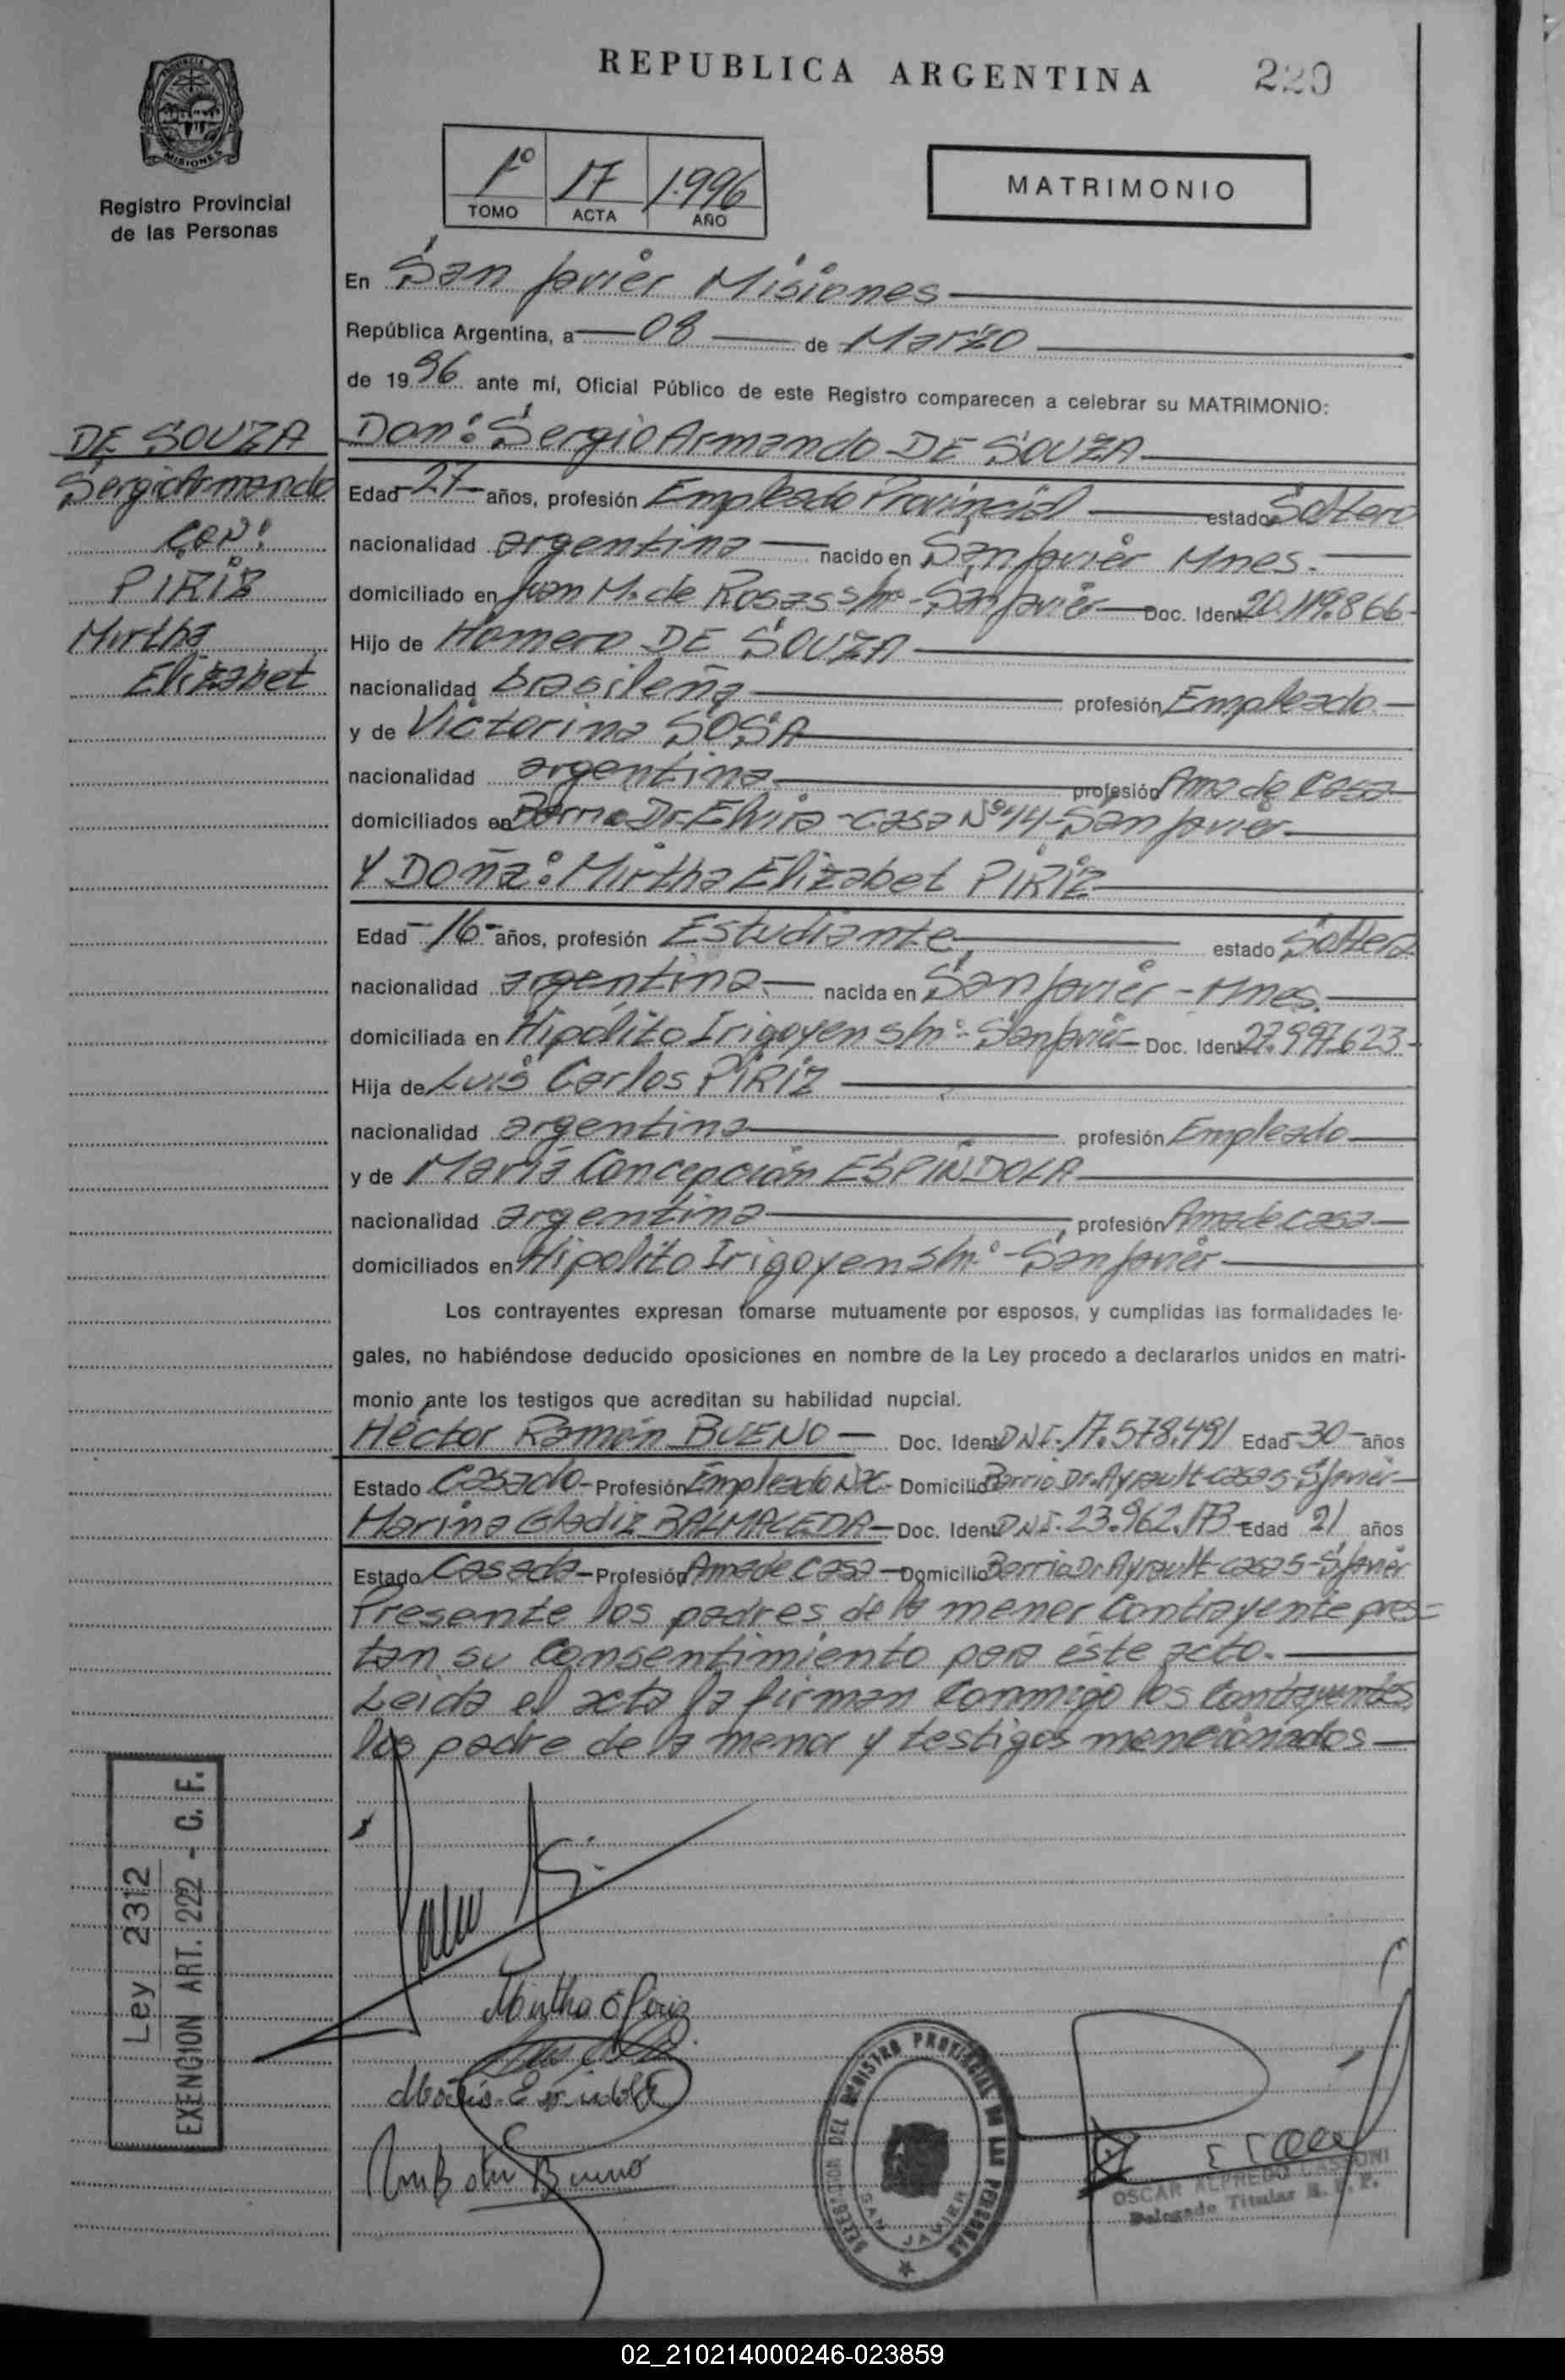 REPUBLICA ARGENTINA
220
PROVINCIA
MISIONES
Registro Provincial
de las Personas
1º 17 1.996
TOMO ACTA AÑO
MATRIMONIO
En San Javier Misiones
República Argentina, a 08 de Marzo
de 1996 ante mí, Oficial Público de este Registro comparecen a celebrar su MATRIMONIO:
DE SOUZA
Sergio Armando
CON:
PIRIZ
Mirtha
Elizabet
Don: Sergio Armando DE SOUZA
Edad -27- años, profesión Empleado Provincial estado Soltero
nacionalidad argentina nacido en San Javier Mnes.
domiciliado en Juan M. de Rosas s/nº - San Javier Doc. Ident. 20.119.866
Hijo de Homero DE SOUZA
nacionalidad brasileña profesión Empleado
y de Victorina SOSA
nacionalidad argentina profesión Ama de Casa
domiciliados en Barrio Dr. Elvira - casa Nº 14 - San Javier
Y DOñA: Mirtha Elizabet PIRIZ
Edad -16- años, profesión Estudiante estado Soltera
nacionalidad argentina nacida en San Javier - Mnes.
domiciliada en Hipólito Irigoyen s/nº - San Javier Doc. Ident. 27.997.623
Hija de Luis Carlos PIRIZ
nacionalidad argentina profesión Empleado
y de María Concepción ESPINDOLA
nacionalidad argentina profesión Ama de casa
domiciliados en Hipolito Irigoyen s/nº - San Javier
Los contrayentes expresan tomarse mutuamente por esposos, y cumplidas las formalidades le-
gales, no habiéndose deducido oposiciones en nombre de la Ley procedo a declararlos unidos en matri-
monio ante los testigos que acreditan su habilidad nupcial.
Héctor Ramón BUENO Doc. Ident. DNI. 17.578.491 Edad -30- años
Estado Casado - Profesión Empleado Domicilio Barrio Dr. Ayrault casa 5 - S. Javier
Marina Gladiz BALMACEDA - Doc. Ident. DNI. 23.962.173 Edad 21 años
Estado Casada - Profesión Ama de Casa - Domicilio Barrio Dr. Ayrault casa 5 - S. Javier
Presente los padres de la menor Contrayente pres=
tan su consentimiento para éste acto.
Leída el acta la firman conmigo los Contrayentes
los padre de la menor y testigos mencionados
Ley 2312
EXENCION ART. 222 - C. F.
Mirtha E Piriz
María Espindola
Bueno
DELEGACION DEL REGISTRO PROVINCIAL DE LAS PERSONAS
SAN JAVIER
OSCAR ALFREDO CASSONI
Delegado Titular R. P. P.
02_210214000246-023859